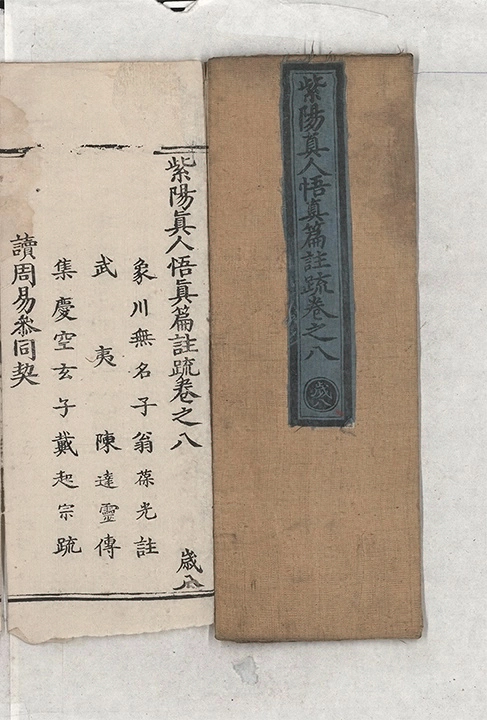 紫陽真人悟真篇註疏卷之八
歲八
紫陽眞人悟眞篇註疏卷之八
歲八
象川無名子翁葆光註
武夷陳達靈傳
集慶空玄子戴起宗疏
讀周易叅同契